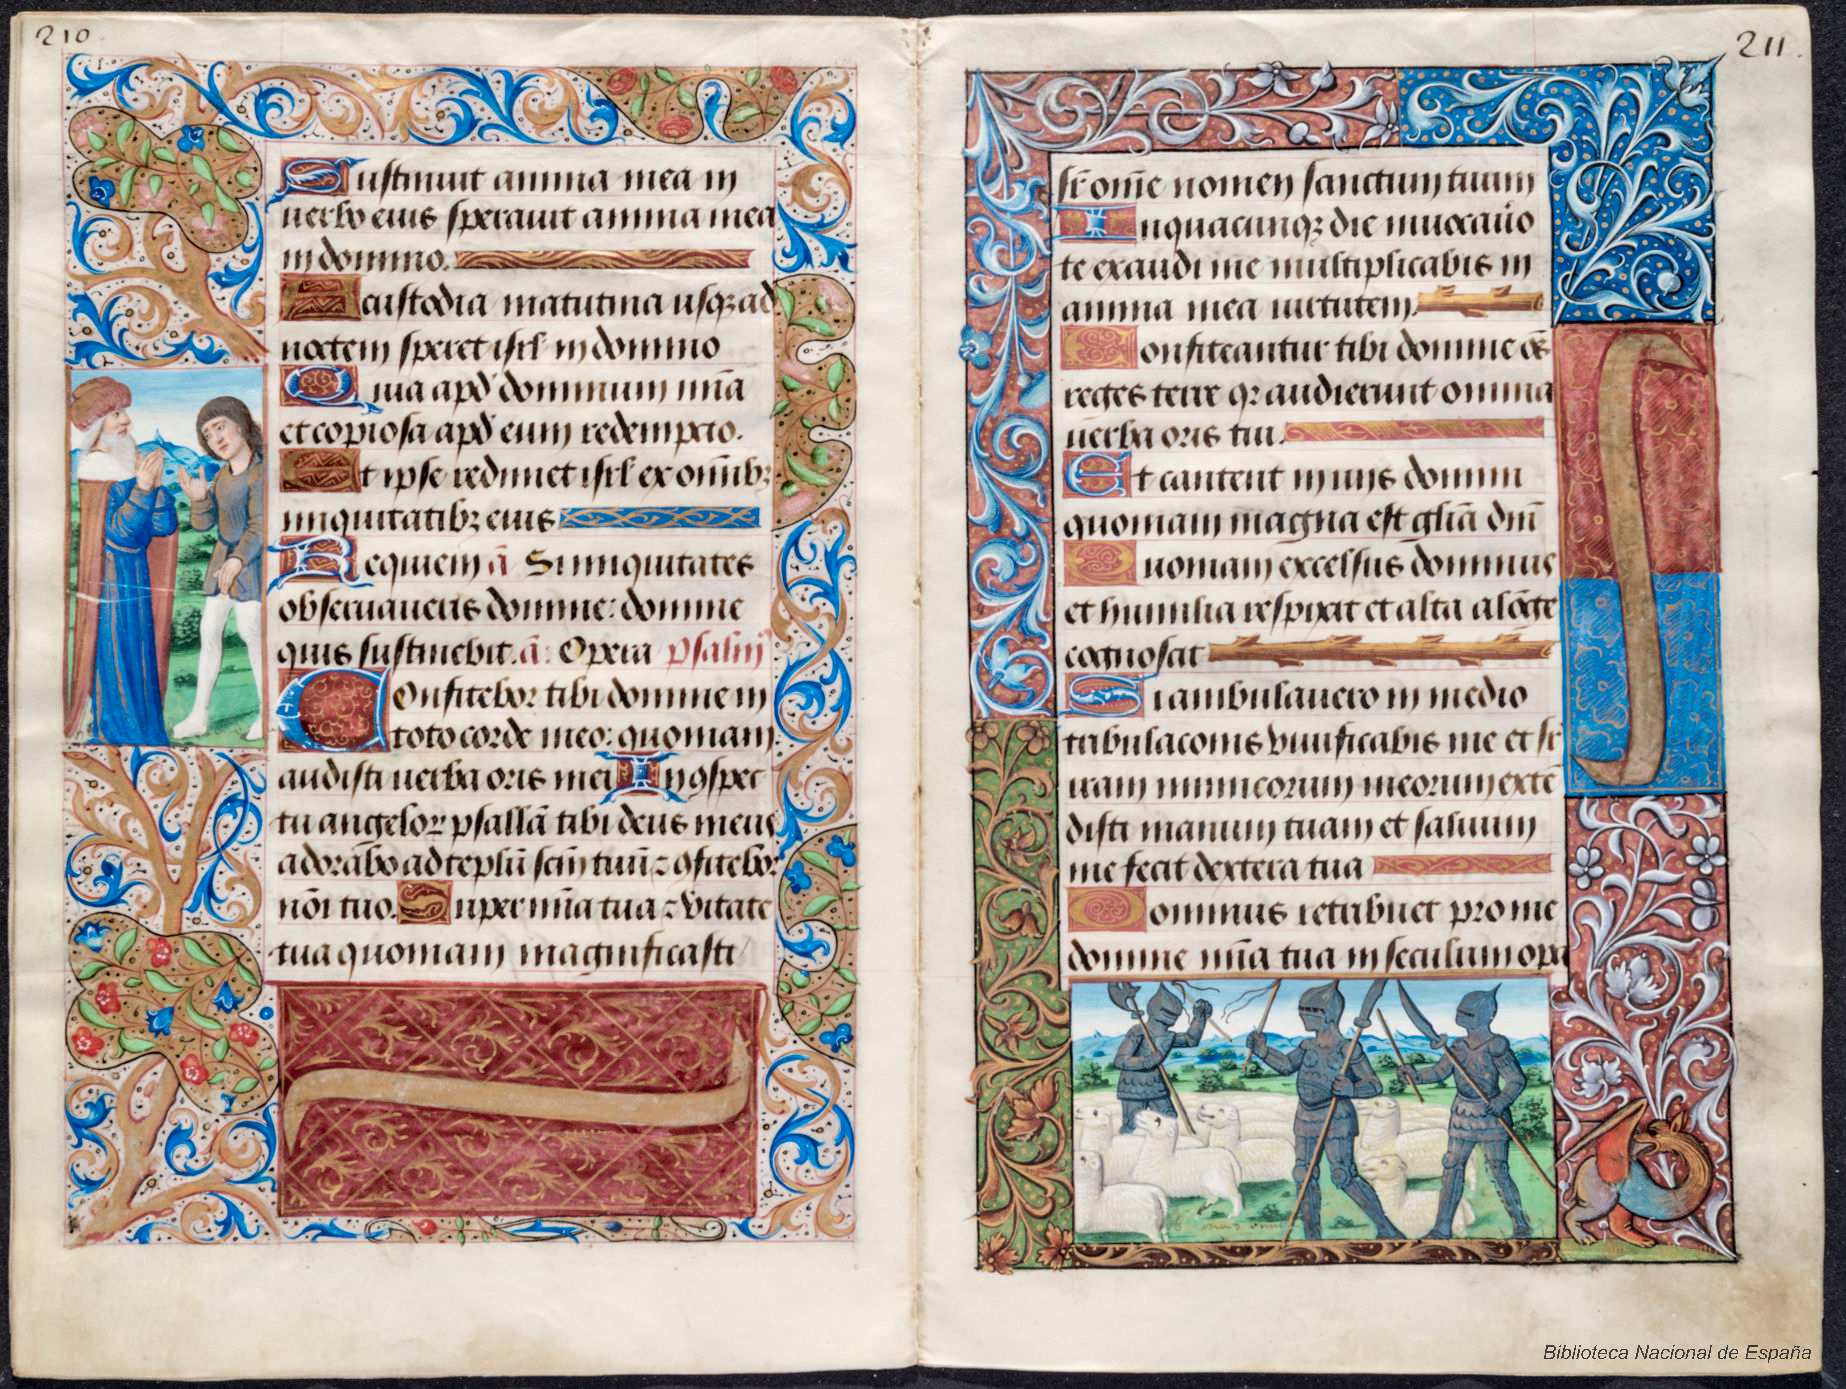 210
Sustinuit anima mea in
uerbo eius sperauit anima mea
in domino.
A custodia matutina usqꝫ ad
noctem speret isrl' in domino
Quia apd' dominum mīa
et copiosa apd' eum redempcio.
Et ipse redimet isrl' ex omībꝫ
iniquitatibꝫ eius
Requiem ā Si iniquitates
obseruaueris domine: domine
quis sustinebit. ā: Opera psalm̄
Confitebor tibi domine in
toto corde meo: quoniam
audisti uerba oris mei In ꝯspec
tu angeloꝝ psallā tibi deus meus
adorabo ad tēplū scm̄ tuū ⁊ ꝯfitebor
nōi tuo. Super mīa tua ⁊ ūitate
tua quoniam magnificasti
211
sr̄ om̄e nomen sanctum tuum
In quacunqꝫ die inuocaūo
te exaudi me multiplicabis in
anima mea uirtutem.
Confiteantur tibi domine oēs
reges terre qꝫ audierunt omnia
uerba oris tui.
Et cantent in uijs domini
quoniam magna est gl̄ia dn̄i
Quoniam excelsus dominus
et humilia respicit et alta a lōge
cognoscit
Si ambulauero in medio
tribulaconis viuificabis me et sr̄
iram inimicorum meorum extē
disti manum tuam et saluum
me fecit dextera tua
Dominus retribuet pro me
domine mīa tua in seculum opa
Biblioteca Nacional de España